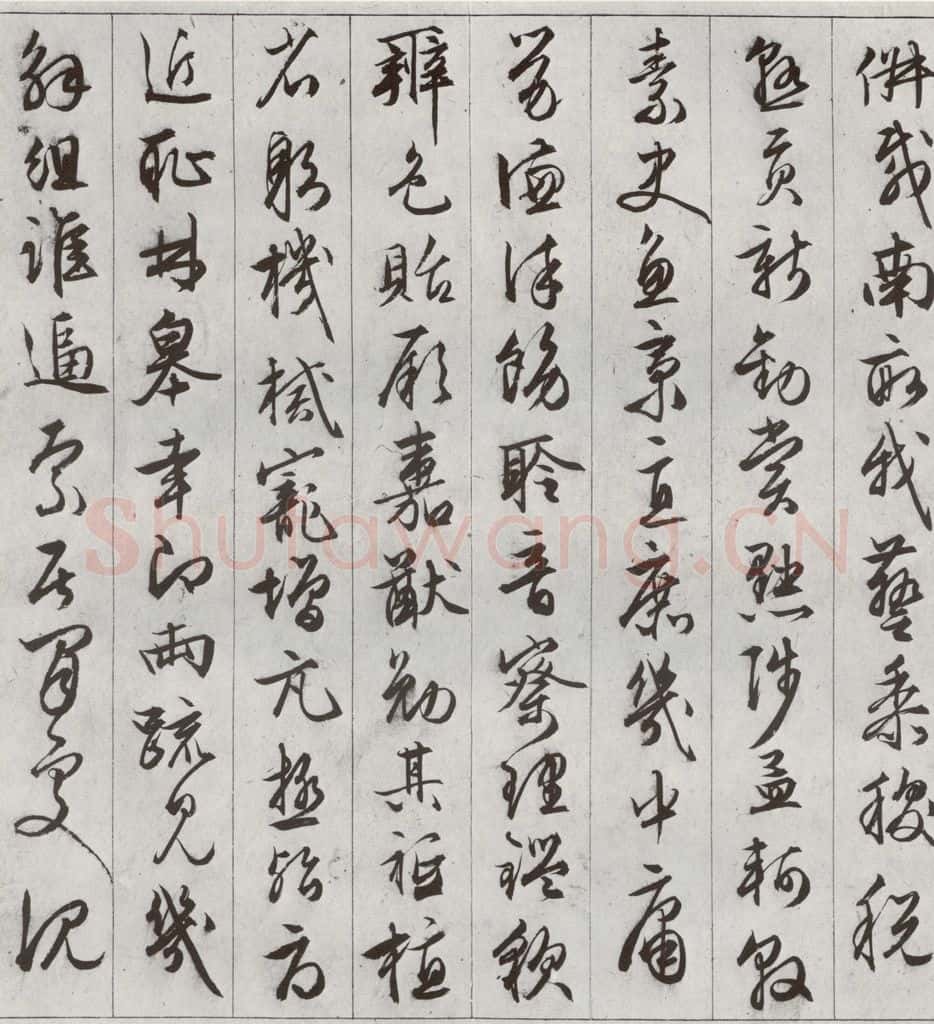 俶載南畝我藝黍稷稅
熟貢新勸賞黜陟孟軻敦
素史魚秉直庶幾中庸
勞謙謹飭聆音察理鑑貌
辨色貽厥嘉猷勉其祗植
省躬機械寵增亢極殆辱
近耻林皋幸即兩疏見幾
解組誰逼索居閒處沉
Shufawang.CN